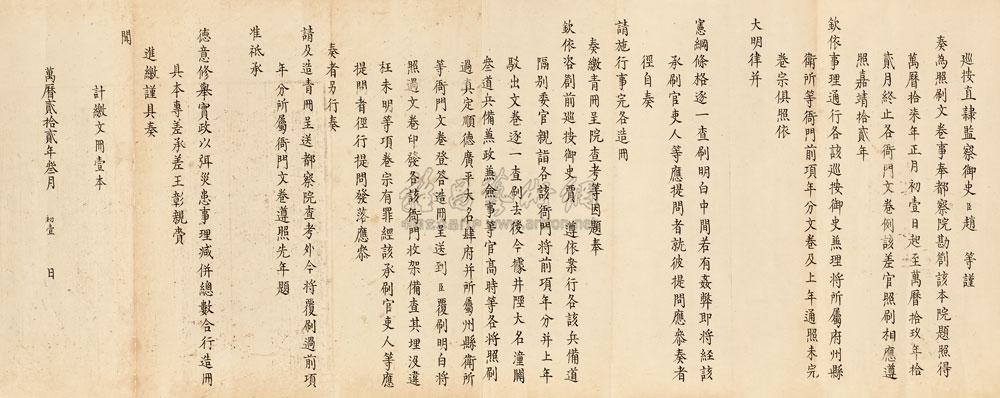 巡按直隸監察御史臣趙 等謹
奏為照刷文卷事奉都察院勘劄該本院題照得
萬曆拾柒年正月初壹日起至萬曆拾玖年拾
貳月終止各衙門文卷例該差官照刷相應遵
照嘉靖拾貳年
欽依事理通行各該巡按御史無理將所屬府州縣
衛所等衙門前項年分文卷及上年通照未完
卷宗俱照依
大明律并
憲綱條格逐一查刷明白中間若有姦弊即將經該
承刷官吏人等應提問者就彼提問應叅奏者
徑自奏
請施行事完各造冊
奏繳青冊呈院查考等因題奉
欽依咨劄前巡按御史賈 遵依案行各該兵備道
隔別委官親詣各該衙門將前項年分并上年
駁出文卷逐一查刷去後今據井陘大名潼關
叁道兵備兼政兼僉事等官高時等各將照刷
過真定順德廣平大名肆府并所屬州縣衛所
等衙門文卷登答造冊呈送到臣覆刷明白將
照過文卷印發各該衙門收架備查其埋沒違
枉未明等項卷宗有罪經該承刷官吏人等應
提問者徑行提問發落應叅
奏者另行奏
請及造青冊呈送都察院查考外今將覆刷過前項
年分所屬衙門文卷遵照先年題
准祗承
德意修舉實政以弭災患事理減併總數合行造冊
具本專差承差王彰親賫
進繳謹具奏
聞
計繳文冊壹本
萬曆貳拾貳年叁月 初壹 日